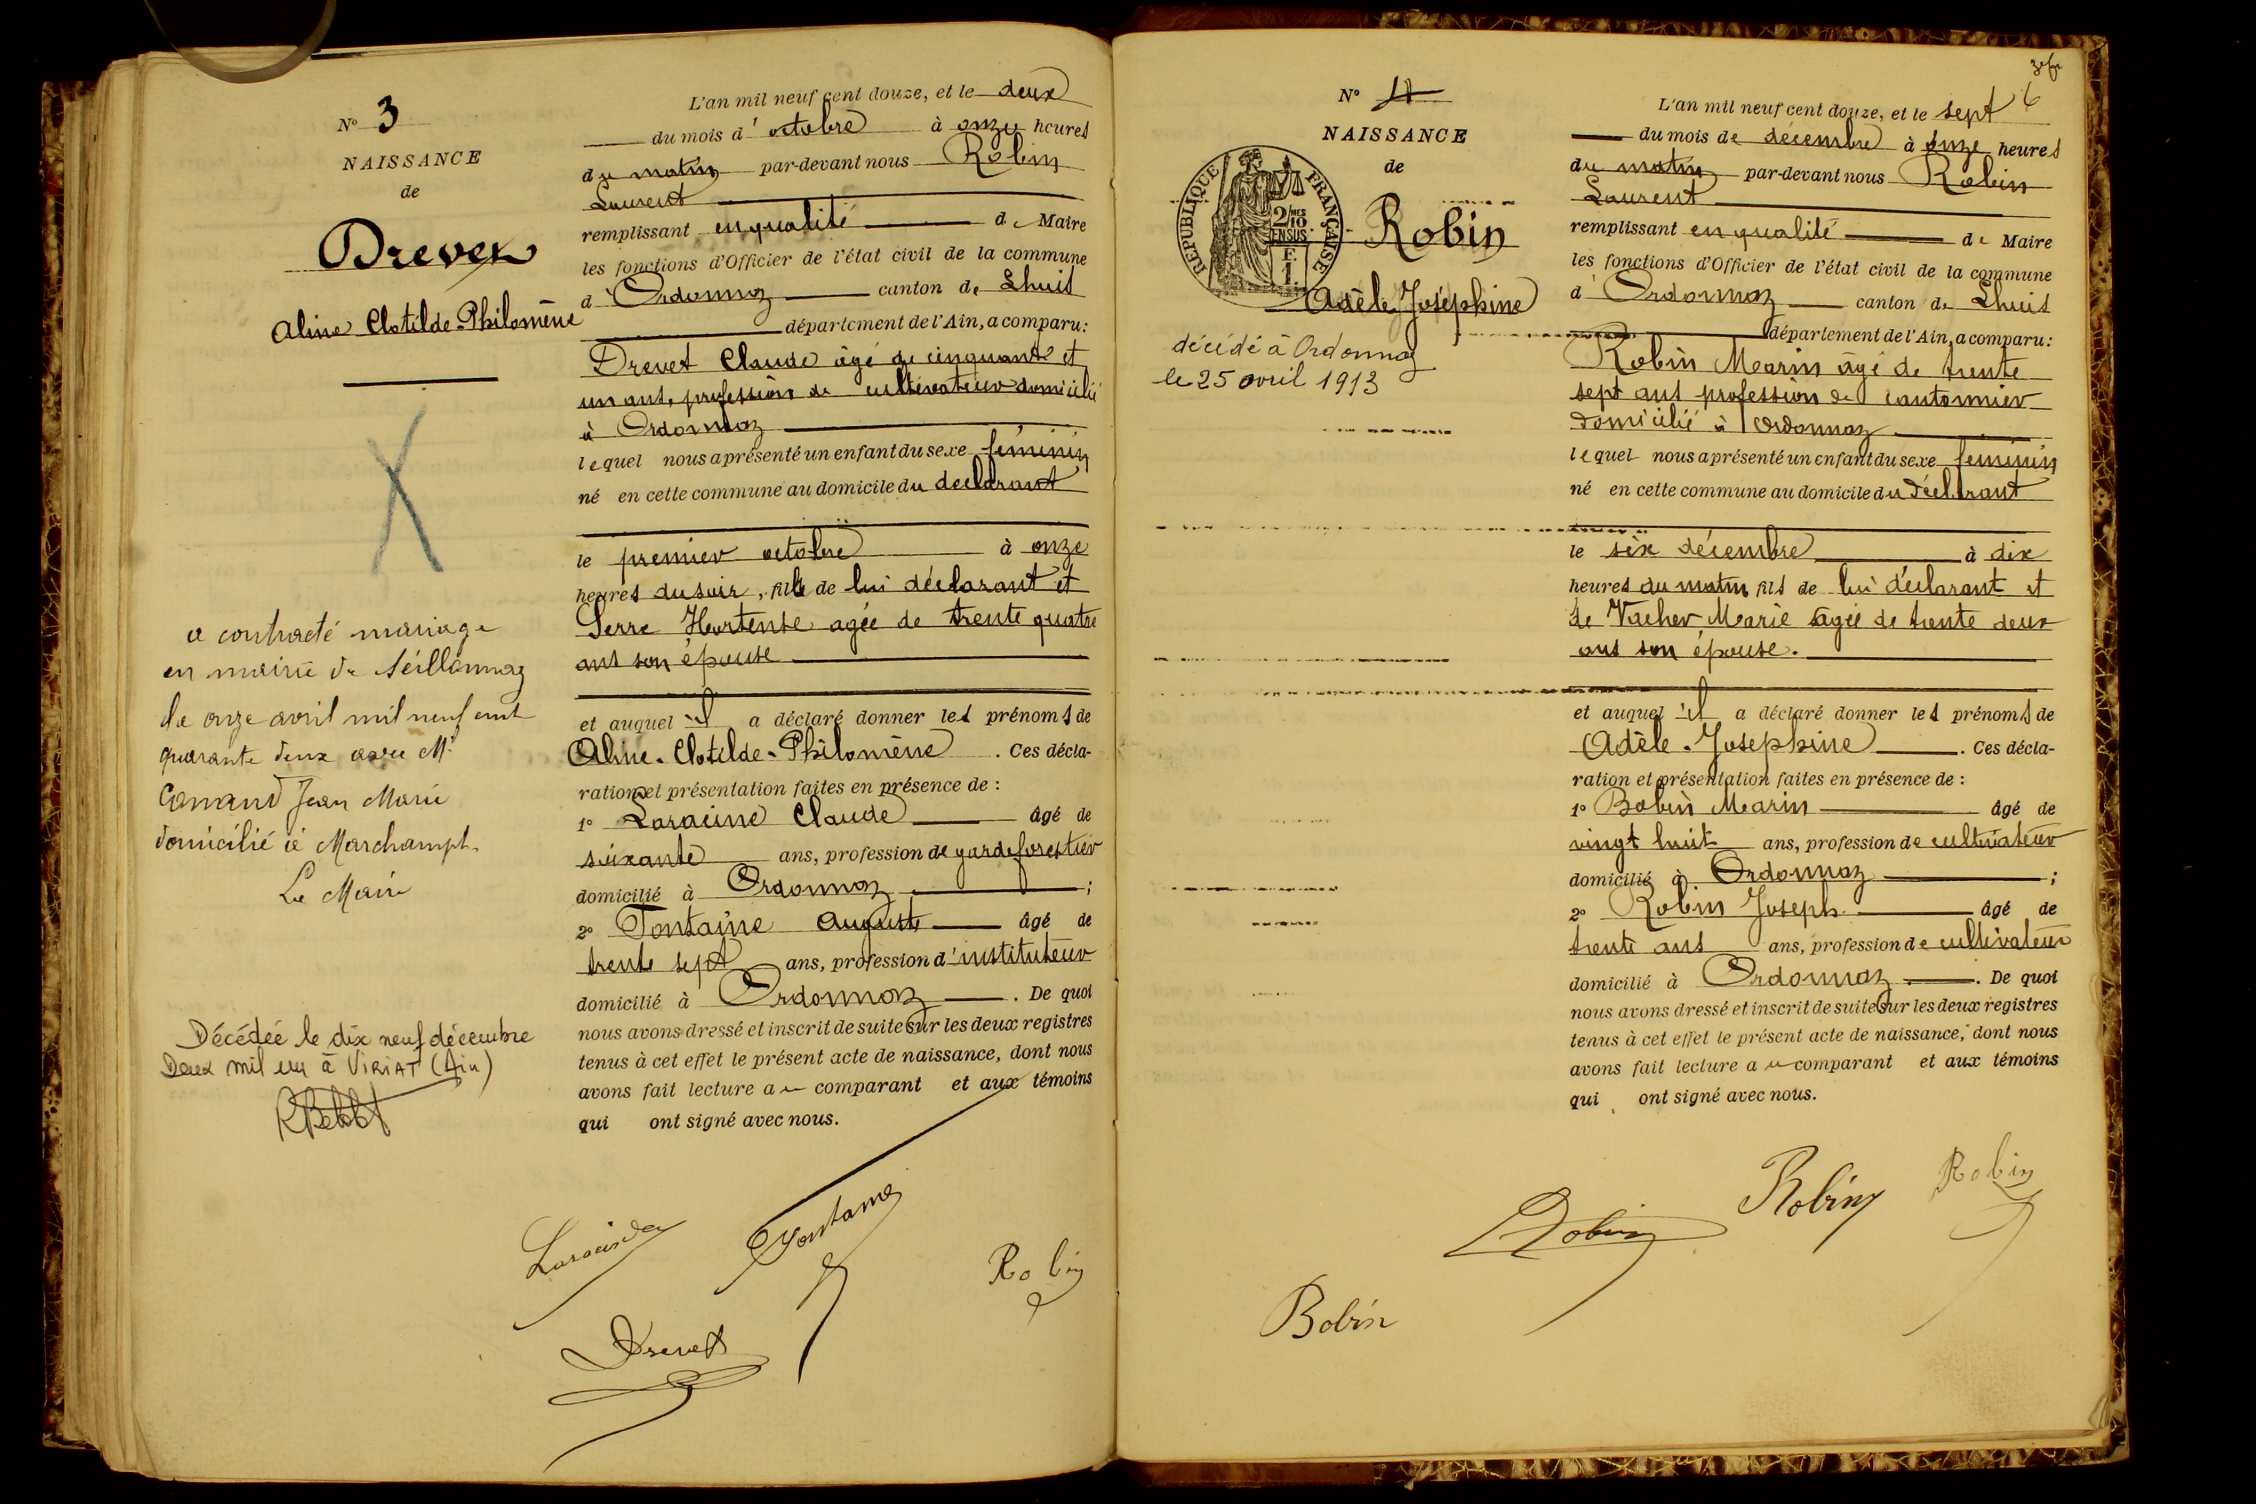 N° 3
NAISSANCE
de
Drevet
Aline Clotilde-Philomène
a contracté mariage
en mairie de Seillonnaz
le onze avril mil neuf cent
quarante deux avec Mr
Jean Marie
domicilié à Marchamp.
Le Maire
Décédée le dix neuf décembre
Deux mil un à VIRIAT (Ain)
L'an mil neuf cent douze, et le deux
du mois d'octobre à onze heures
du matin par-devant nous Robin
Laurent
remplissant en qualité de Maire
les fonctions d'Officier de l'état civil de la commune
d'Ordonnaz canton de Lhuis
département de l'Ain, a comparu:
Drevet Claude âgé de cinquante et
un ans, profession de cultivateur domicilié
à Ordonnaz
lequel nous a présenté un enfant du sexe féminin
né en cette commune au domicile du déclarant
le premier octobre à onze
heures du soir, fille de lui déclarant et
Serre Hortense agée de trente quatre
ans son épouse
et auquel il a déclaré donner les prénoms de
Aline-Clotilde-Philomène. Ces décla-
ration et présentation faites en présence de :
1° Claude âgé de
soixante ans, profession de garde forestier
domicilié à Ordonnaz ;
2° Fontaine Auguste âgé de
trente sept ans, profession d'instituteur
domicilié à Ordonnaz. De quoi
nous avons dressé et inscrit de suite sur les deux registres
tenus à cet effet le présent acte de naissance, dont nous
avons fait lecture au comparant et aux témoins
qui ont signé avec nous.
Robin
Drevet
N° 4
NAISSANCE
de
RÉPUBLIQUE FRANÇAISE
2/10
EN SUS
F.
1.
Robin
Adèle Joséphine
décédé à Ordonnaz
le 25 avril 1913
6
L'an mil neuf cent douze, et le sept
du mois de décembre à onze heures
du matin par-devant nous Robin
Laurent
remplissant en qualité de Maire
les fonctions d'Officier de l'état civil de la commune
d'Ordonnaz canton de Lhuis
département de l'Ain, a comparu:
Robin Marin âgé de trente
sept ans profession de cantonnier
domicilié à Ordonnaz
lequel nous a présenté un enfant du sexe féminin
né en cette commune au domicile du déclarant
le six décembre à dix
heures du matin fils de lui déclarant et
de Vacher Marie agée de trente deux
ans son épouse.
et auquel il a déclaré donner les prénoms de
Adèle-Joséphine. Ces décla-
ration et présentation faites en présence de :
1° Bobin Marin âgé de
vingt huit ans, profession de cultivateur
domicilié à Ordonnaz ;
2° Robin Joseph âgé de
trente ans ans, profession de cultivateur
domicilié à Ordonnaz. De quoi
nous avons dressé et inscrit de suite sur les deux registres
tenus à cet effet le présent acte de naissance, dont nous
avons fait lecture au comparant et aux témoins
qui ont signé avec nous.
Robin
Robin
Robin
Bobin